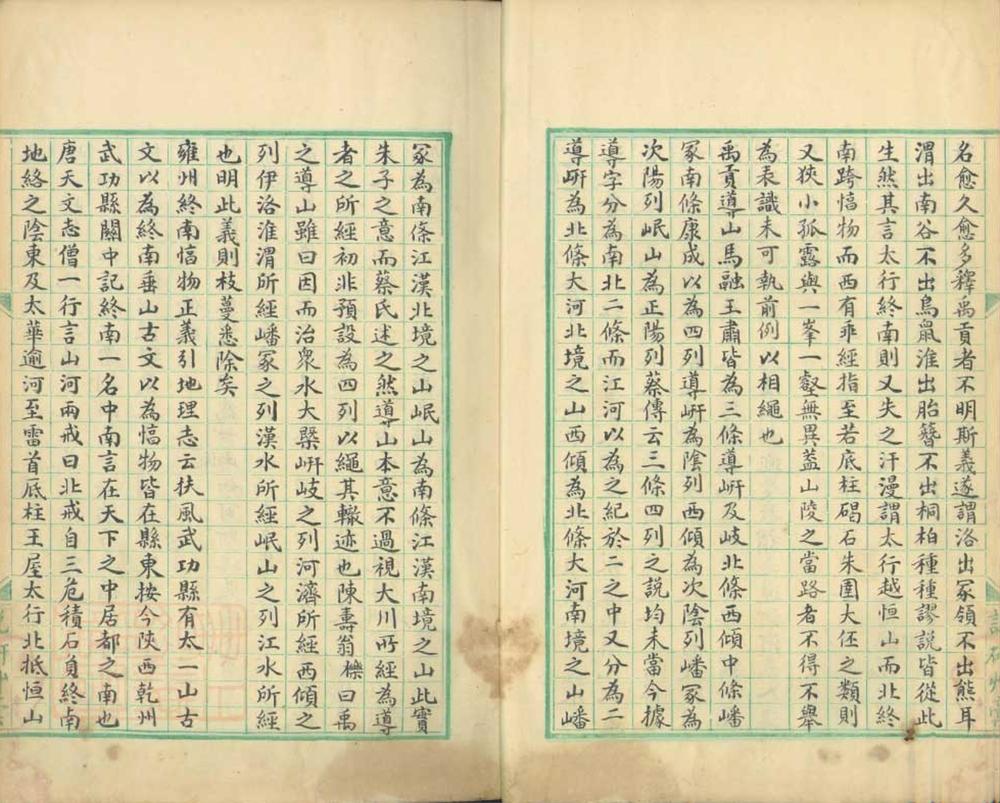 名愈久愈多釋禹貢者不明斯義遂謂洛出冢領不出熊耳
渭出南谷不出鳥鼠淮出胎簪不出桐柏種種謬說皆從此
生然其言太行終南則又失之汗漫謂太行越恒山而北終
南跨惇物而西有乖經指至若底柱碣石朱圉大伾之類則
又狹小孤露與一峯一壑無異蓋山陵之當路者不得不舉
為表識未可執前例以相繩也
禹貢導山馬融王肅皆為三條導岍及岐北條西傾中條嶓
冢南條康成以為四列導岍為陰列西傾為次陰列嶓冢為
次陽列岷山為正陽列蔡傳云三條四列之說均未當今據
導字分為南北二條而江河以為之紀於二之中又分為二
導岍為北條大河北境之山西傾為北條大河南境之山嶓
冢為南條江漢北境之山岷山為南條江漢南境之山此實
朱子之意而蔡氏述之然導山本意不過視大川所經為導
者之所經初非預設為四列以繩其轍迹也陳壽翁櫟曰禹
之導山雖曰因而治衆水大槩岍岐之列河濟所經西傾之
列伊洛淮渭所經嶓冢之列漢水所經岷山之列江水所經
也明此義則枝蔓悉除矣
雍州終南惇物正義引地理志云扶風武功縣有太一山古
文以為終南垂山古文以為惇物皆在縣東按今陝西乾州
武功縣關中記終南一名中南言在天下之中居都之南也
唐天文志僧一行言山河兩戒曰北戒自三危積石負終南
地絡之陰東及太華逾河至雷首底柱王屋太行北抵恒山